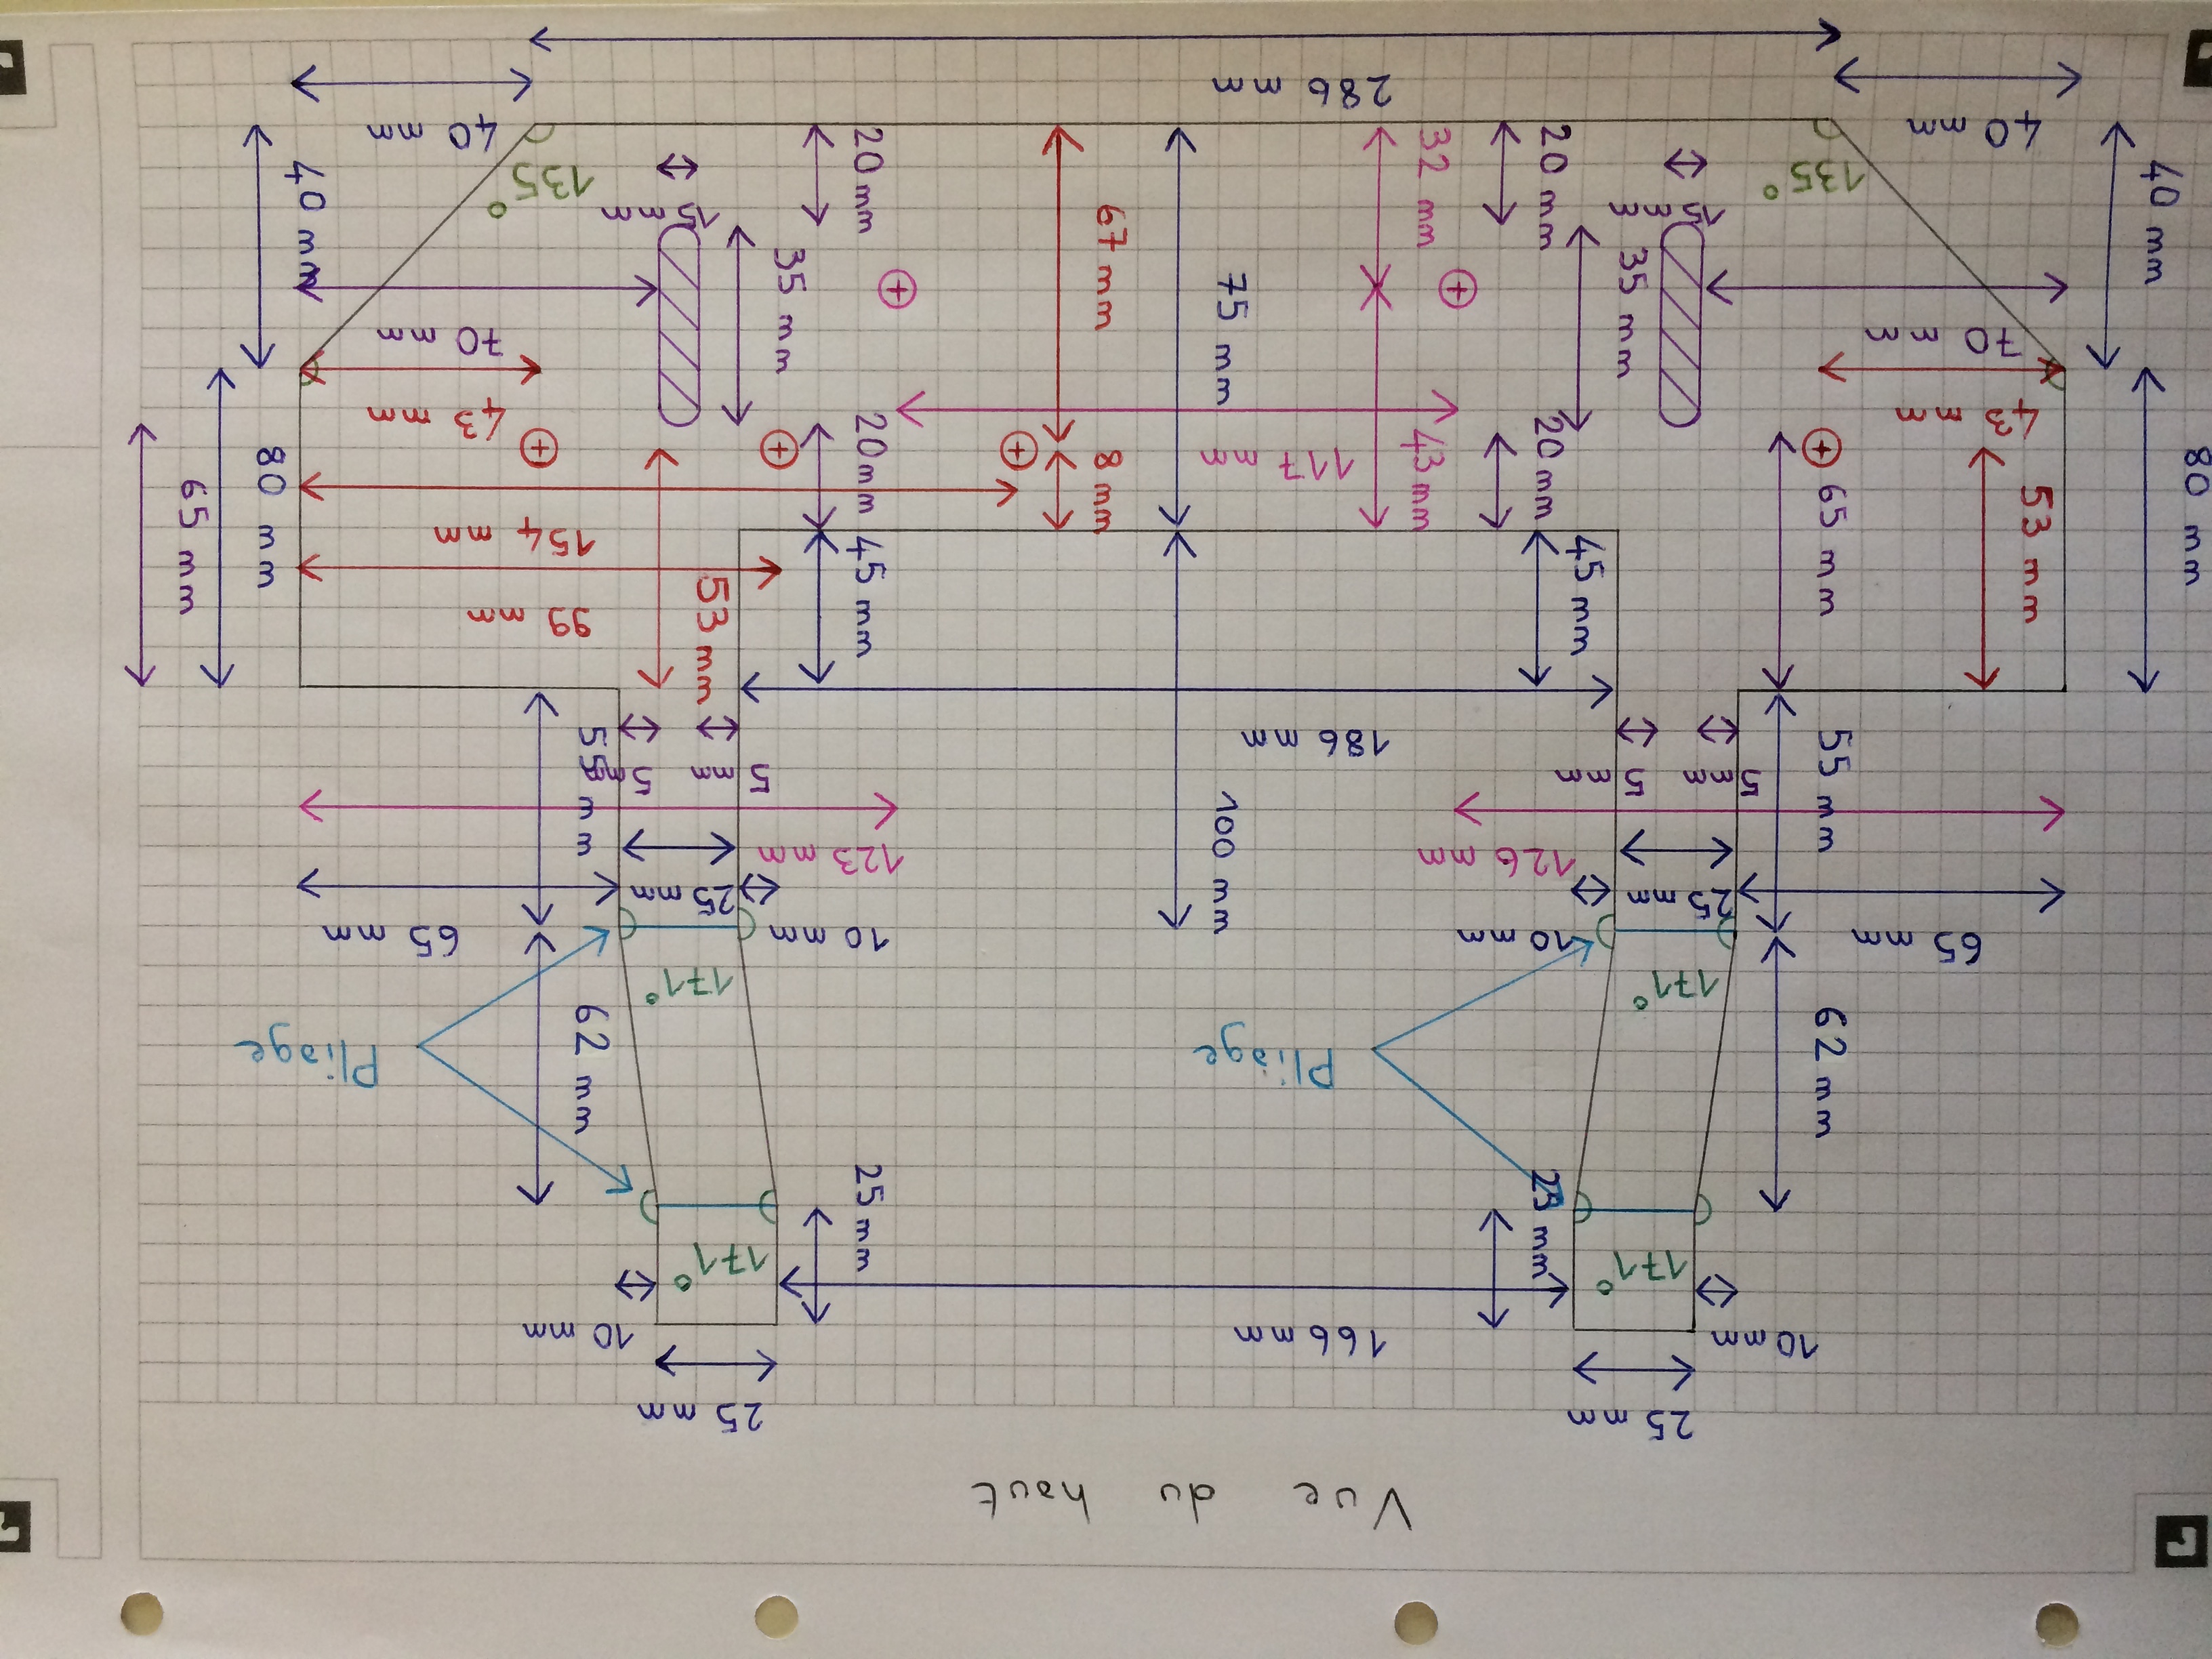 Vue du haut
25 mm
25 mm
10 mm
166 mm
10 mm
171°
25 mm
25 mm
171°
62 mm
Pliage
62 mm
Pliage
171°
171°
65 mm
10 mm
10 mm
65 mm
25 mm
25 mm
126 mm
100 mm
123 mm
55 mm
5 mm
5 mm
5 mm
5 mm
55 mm
186 mm
45 mm
45 mm
53 mm
99 mm
154 mm
80 mm
53 mm
65 mm
20 mm
43 mm
117 mm
8 mm
20 mm
80 mm
65 mm
43 mm
43 mm
70 mm
75 mm
70 mm
35 mm
67 mm
35 mm
40 mm
15 mm
15 mm
40 mm
135°
20 mm
32 mm
20 mm
135°
40 mm
40 mm
286 mm